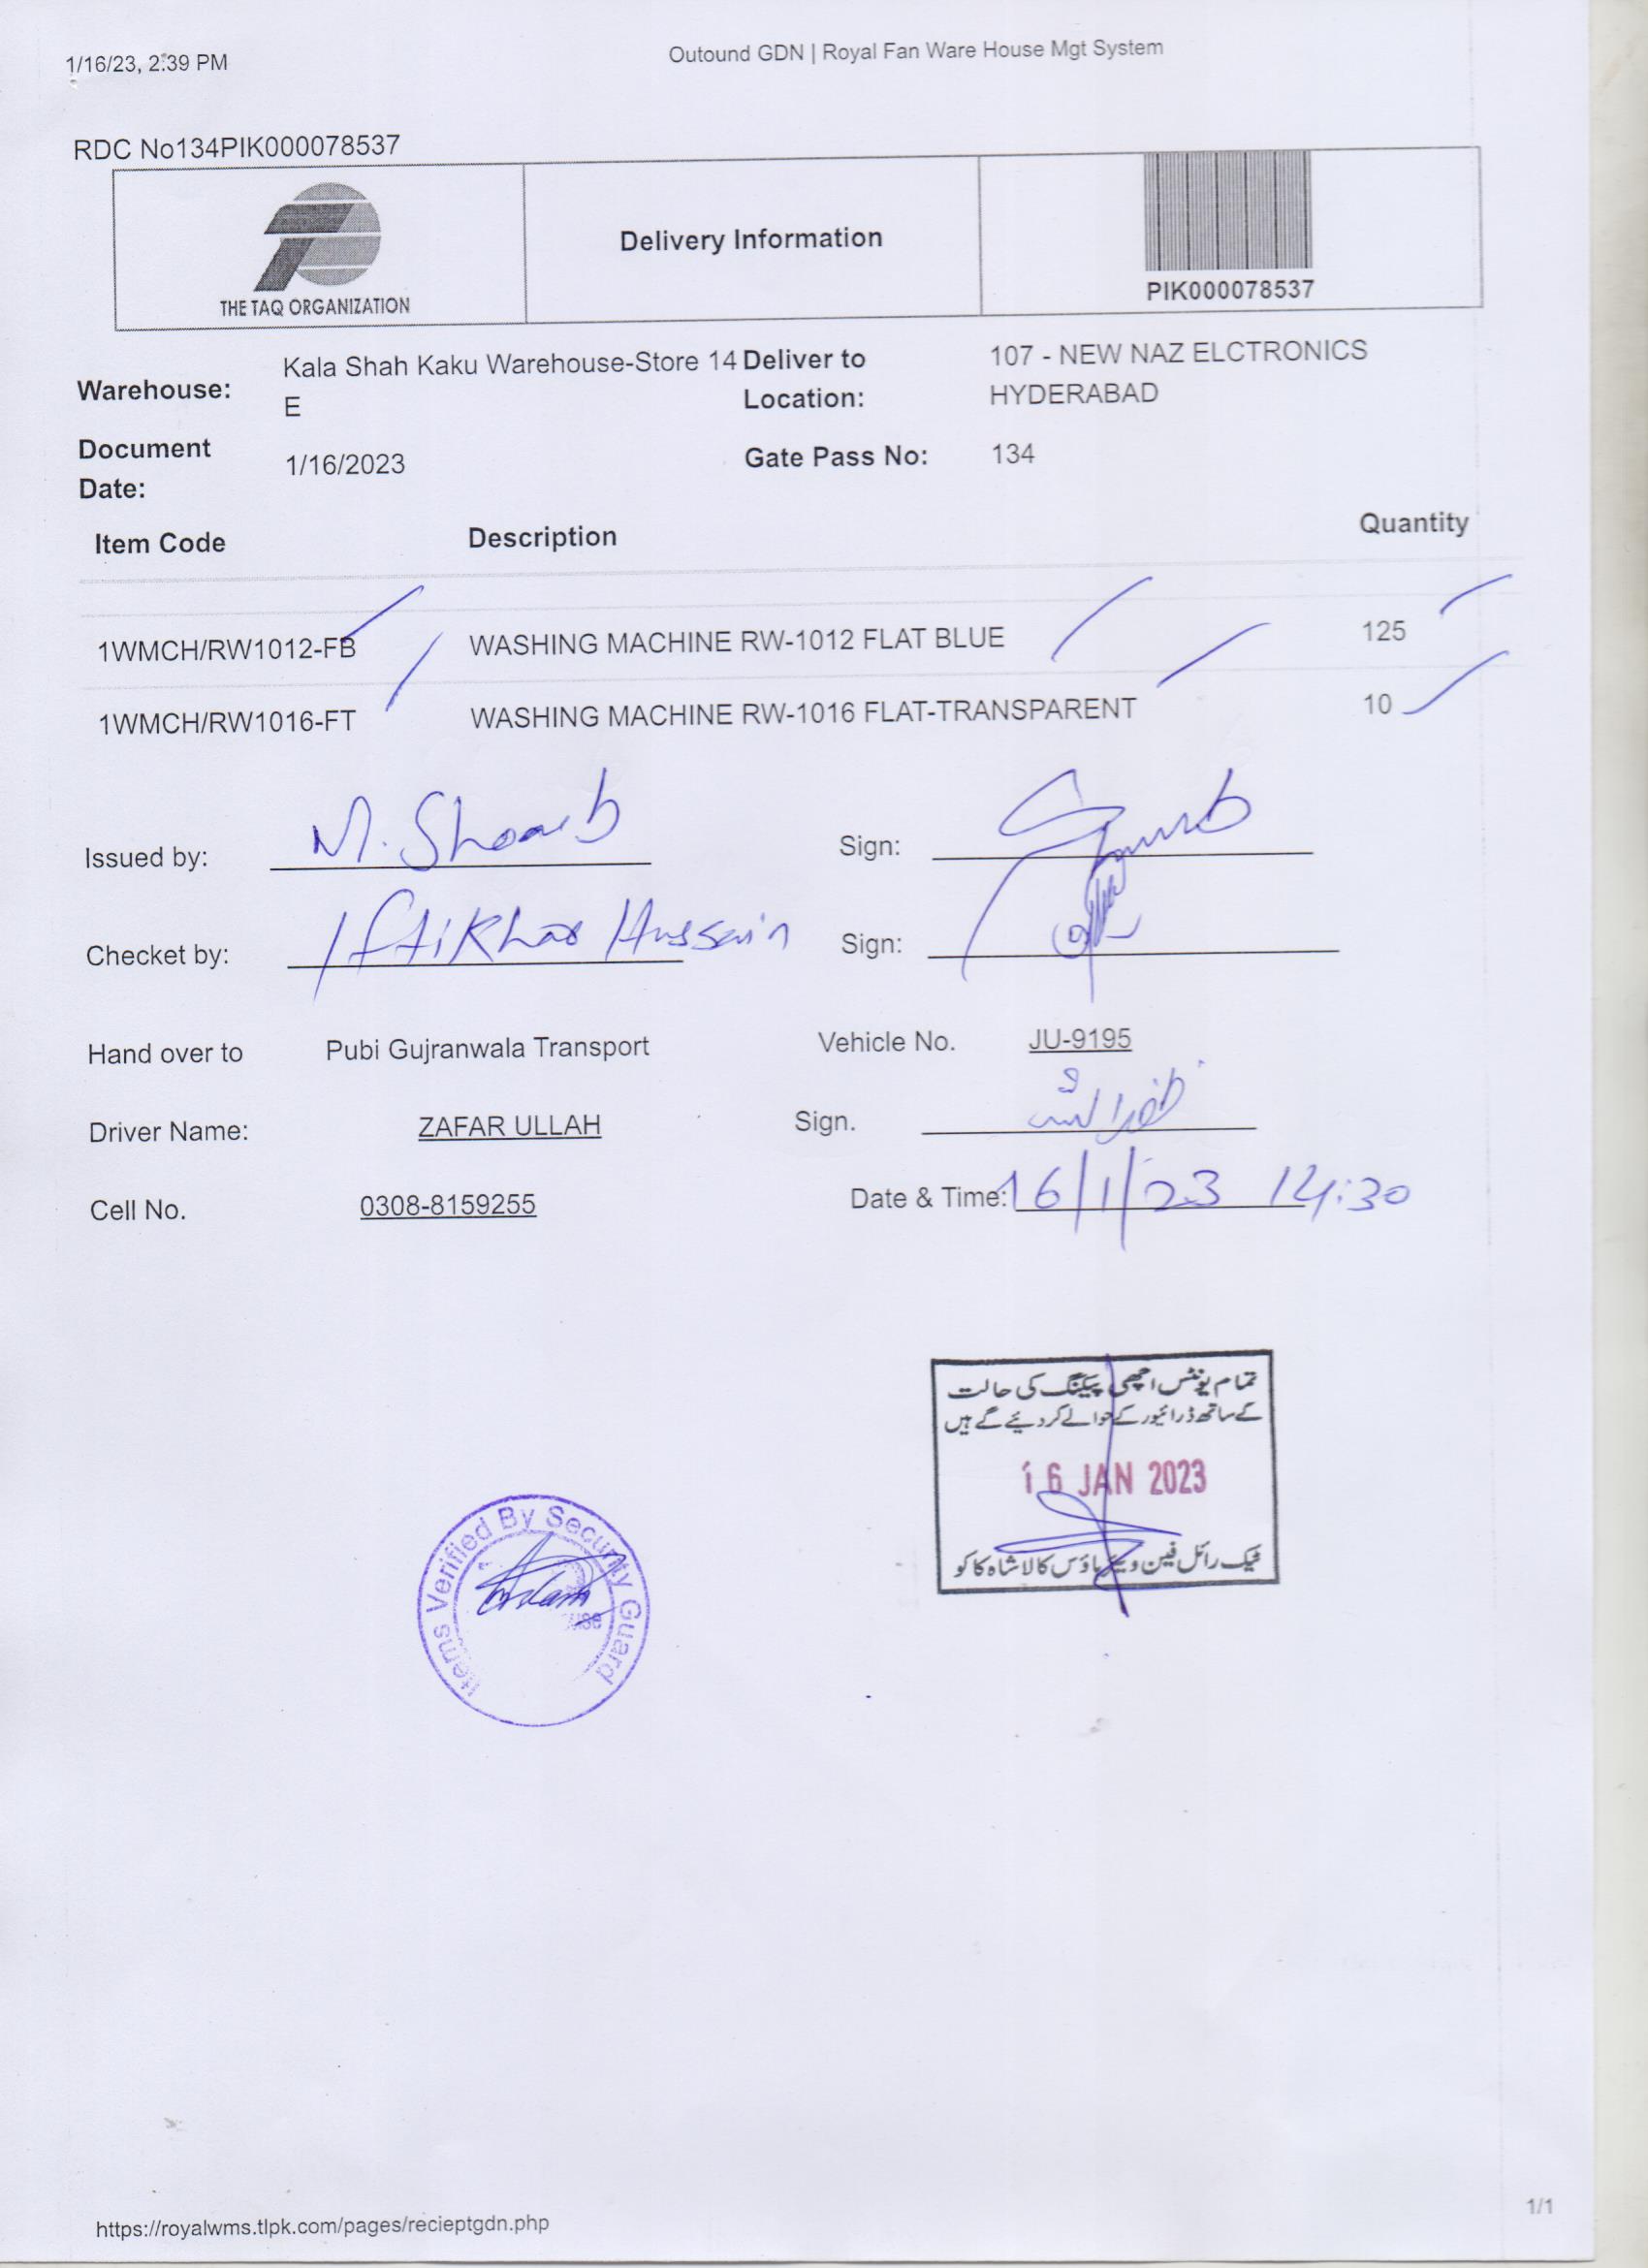 1/16/23, 2:39 PM
Outound GDN | Royal Fan Ware House Mgt System
RDC No134PIK000078537
THE TAQ ORGANIZATION
Delivery Information
PIK000078537
Warehouse: Kala Shah Kaku Warehouse-Store 14 E
Deliver to Location: 107 - NEW NAZ ELCTRONICS HYDERABAD
Document Date: 1/16/2023
Gate Pass No: 134
Item Code Description Quantity
1WMCH/RW1012-FB WASHING MACHINE RW-1012 FLAT BLUE 125
1WMCH/RW1016-FT WASHING MACHINE RW-1016 FLAT-TRANSPARENT 10
Issued by: M. Shoaib Sign:
Checket by: Iftikhar Hussain Sign:
Hand over to Pubi Gujranwala Transport Vehicle No. JU-9195
Driver Name: ZAFAR ULLAH Sign.
Cell No. 0308-8159255 Date & Time: 16/1/23 14:30
تمام یونٹس اچھی پیکنگ کی حالت
کے ساتھ ڈرائیور کے حوالے کر دیئے گے ہیں
16 JAN 2023
ٹیک رائل فین ویئر ہاؤس کالا شاہ کاکو
Items Verified By Security Guard
https://royalwms.tlpk.com/pages/recieptgdn.php
1/1